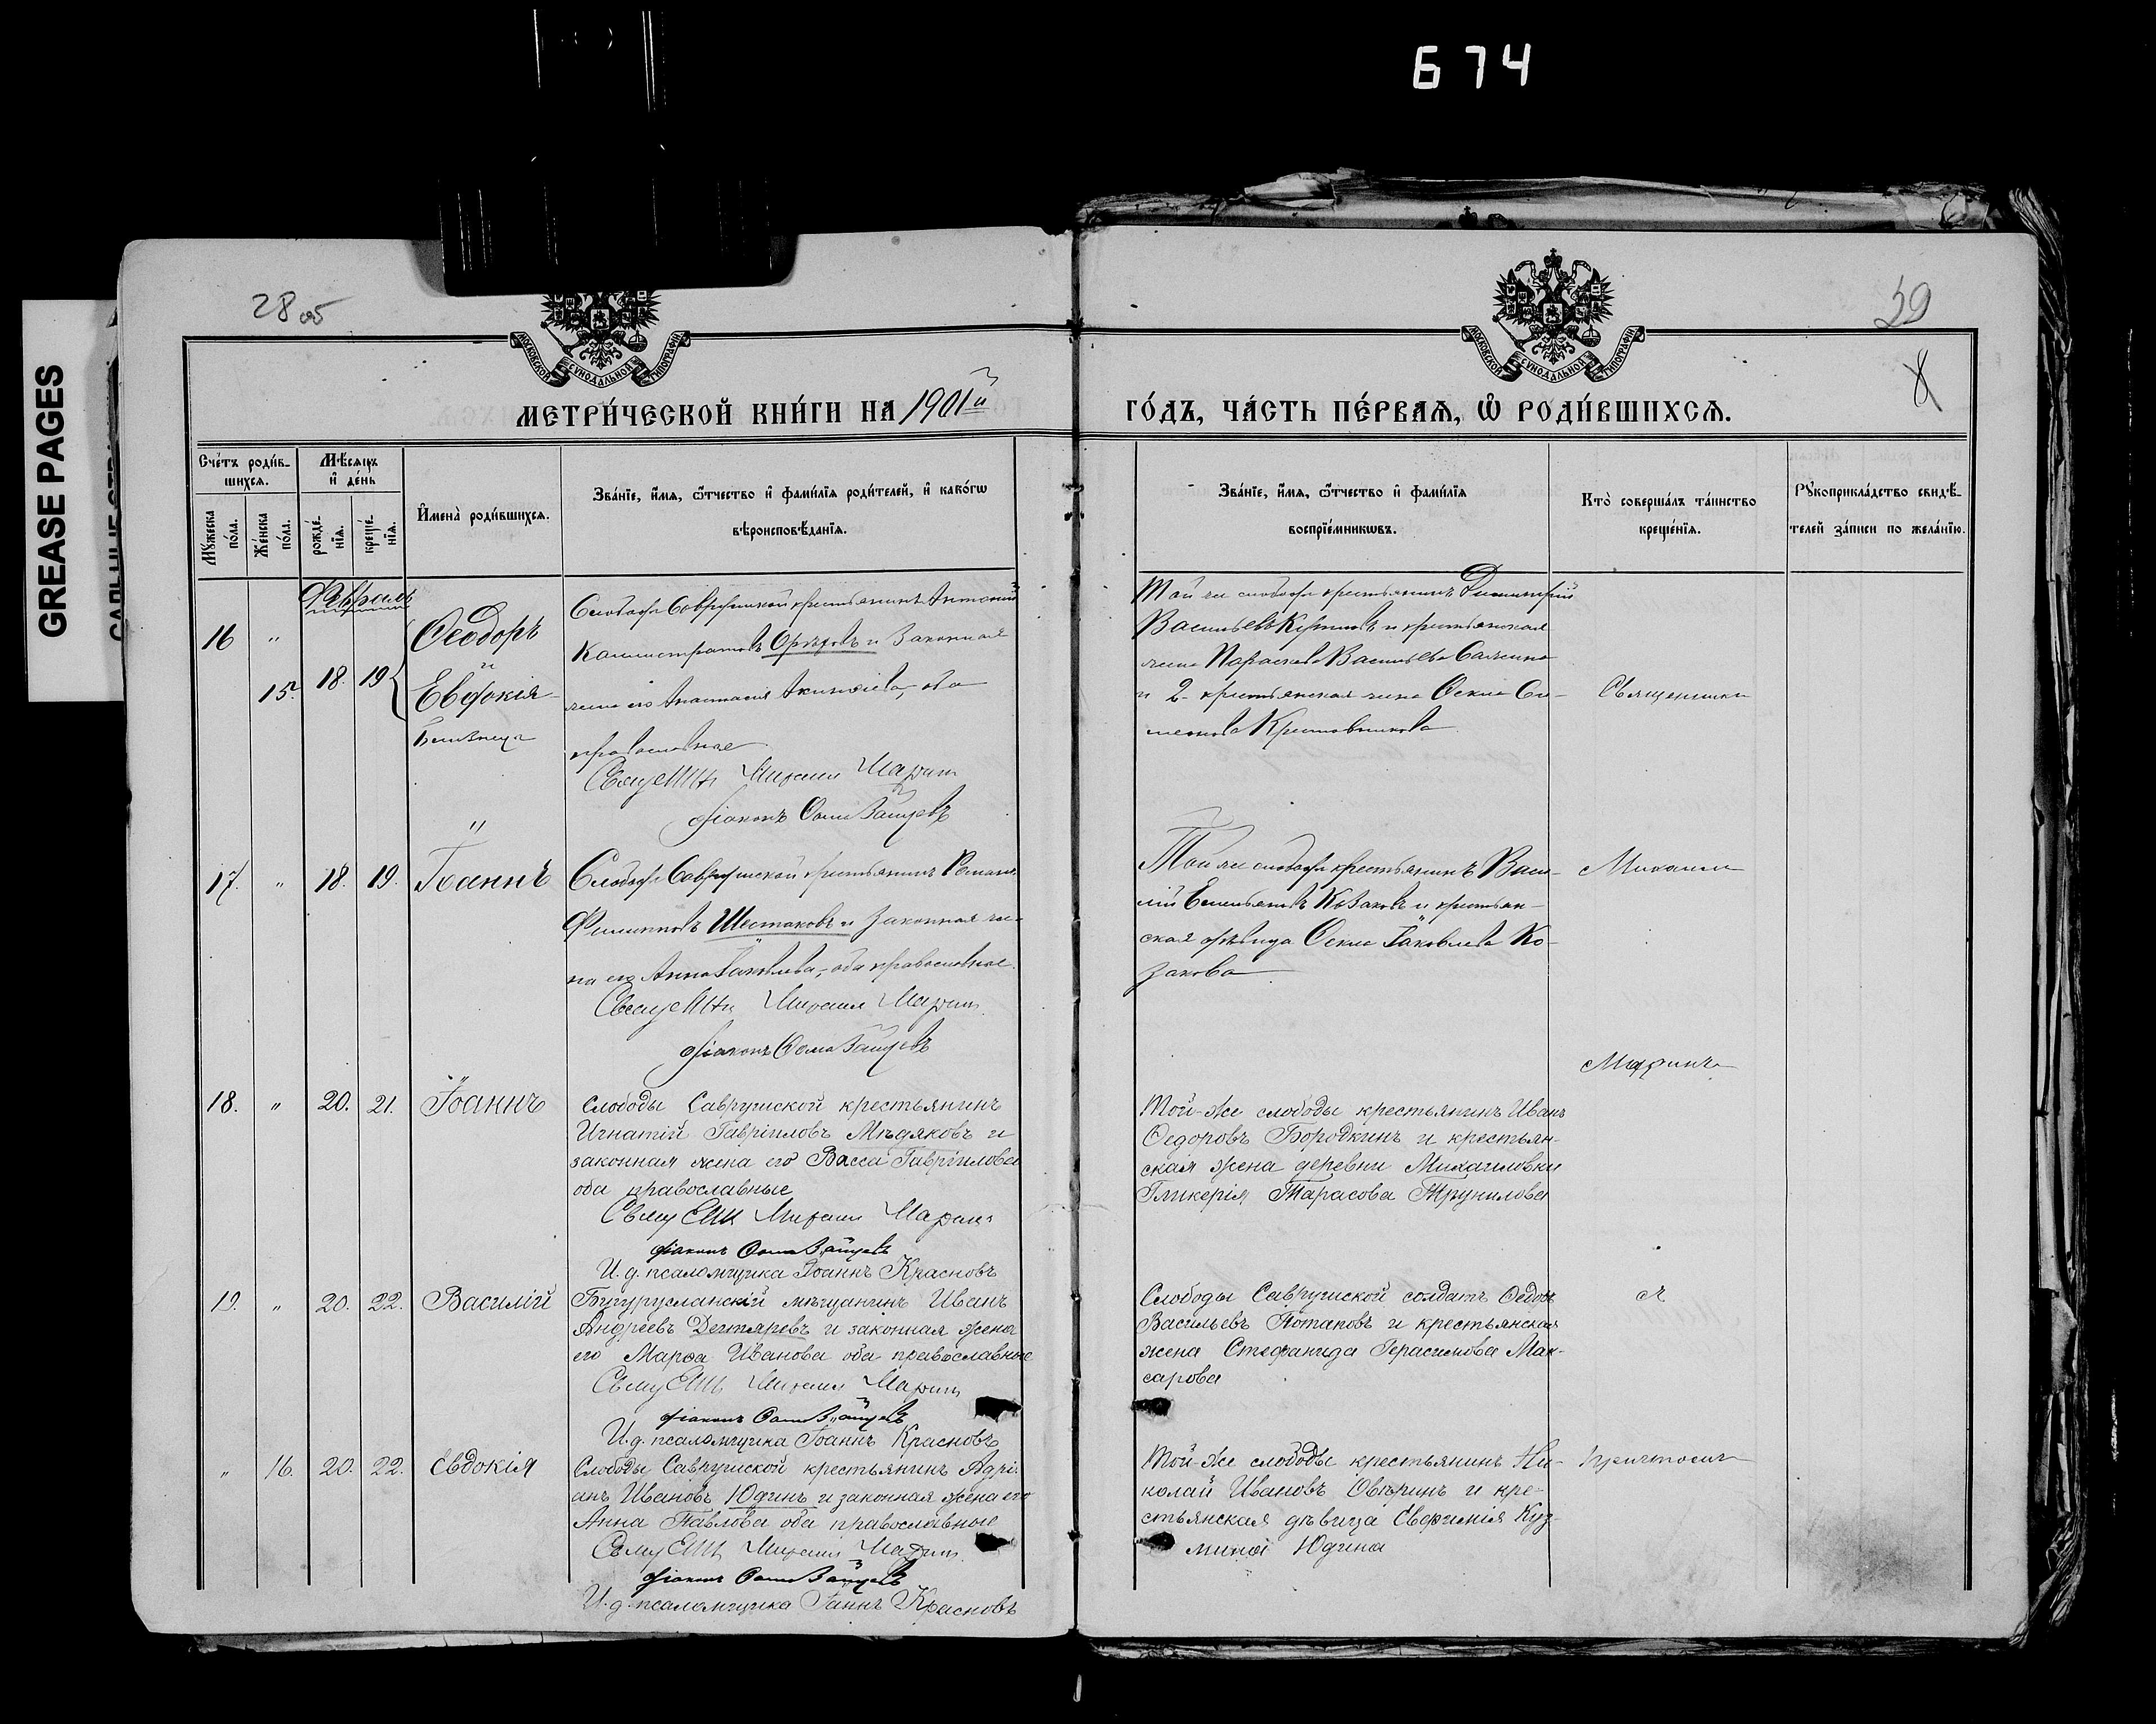 674
GREASE PAGES
28 об
29
8
МОСКОВСКОЙ СѴНОДАЛЬНОЙ ТИПОГРАФІИ
МОСКОВСКОЙ СѴНОДАЛЬНОЙ ТИПОГРАФІИ
МЕТРИ́ЧЕСКОЙ КНИ́ГИ НА 1901й
ГО́ДЪ, ЧА́СТЬ ПЕ́РВАѦ, Ѡ РОДИ́ВШИХСѦ.
Сче́тъ роди́в-
шихсѧ.
Мѣ́сѧцъ
и де́нь
Мꙋжеска
по́ла.
Же́нска
по́ла.
рожде́-
нїѧ.
креще́-
нїѧ.
Имена̀ роди́вшихсѧ.
Зва́нїе, и́мѧ, ѻ҆́тчество и фами́лїѧ роди́телей, и како́гѡ
вѣроисповѣ́данїѧ.
Зва́нїе, и́мѧ, ѻ҆́тчество и фами́лїѧ
воспрїе́мникѡвъ.
Кто̀ соверша́лъ та́инство
креще́нїѧ.
Рꙋкоприкла́дство свидѣ́-
телей за́писи по жела́нїю.
Февраль
16 "
15. 18. 19
Ѳеодоръ
и
Евдокія
близнецы
Слободы Саврушской крестьянинъ Антоній
Каллистратовъ и законная
жена его Анастасія Акинѳіева, оба
православные
Священникъ Михаилъ Маринъ
діаконъ Ѳома Зайцевъ
Той же слободы крестьянинъ Димитрій
Васильевъ и крестьянская
жена Параскева Васильева
и 2. крестьянская жена Ѳекла Си-
меонова Крестовникова
Священникъ
17. " 18. 19. Іоаннъ
Слободы Саврушской крестьянинъ Романъ
Филипповъ Шестаковъ и законная же-
на его Анна Іаковлева, оба православные.
Священникъ Михаилъ Маринъ
діаконъ Ѳома Зайцевъ
Той же слободы крестьянинъ Васи-
лій Емельяновъ Козаковъ и крестьян-
ская дѣвица Ѳекла Іаковлева Ко-
закова
Михаилъ
Маринъ
18. " 20. 21. Іоаннъ
Слободы Саврушской крестьянинъ
Игнатій Гавріиловъ Мѣдяковъ и
законная жена его Васса Гавріилова
оба православные
Священникъ Михаилъ Маринъ
діаконъ Ѳома Зайцевъ
И. д. псаломщика Іоаннъ Красновъ
Той-же слободы крестьянинъ Иванъ
Ѳедоровъ Бородкинъ и крестьян-
ская жена деревни Михаиловки
Гликерія Тарасова Трунилова
19. " 20. 22. Василій
Бугурусланскій мѣщанинъ Иванъ
Андреевъ Дегтяревъ и законная жена
его Марѳа Иванова оба православные
Священникъ Михаилъ Маринъ
діаконъ Ѳома Зайцевъ
И. д. псаломщика Іоаннъ Красновъ
Слободы Саврушской солдатъ Ѳедоръ
Васильевъ Потаповъ и крестьянская
жена Стефанида Герасимова Мак-
сарова
съ
" 16. 20. 22. Евдокія
Слободы Саврушской крестьянинъ Адрі-
анъ Ивановъ Юдинъ и законная жена его
Анна Павлова оба православные
Священникъ Михаилъ Маринъ
діаконъ Ѳома Зайцевъ
И. д. псаломщика Іоаннъ Красновъ
Той-же слободы крестьянинъ Ни-
колай Ивановъ Овѣринъ и кре-
стьянская дѣвица Евфимія Куз-
мина Юдина
причтомъ